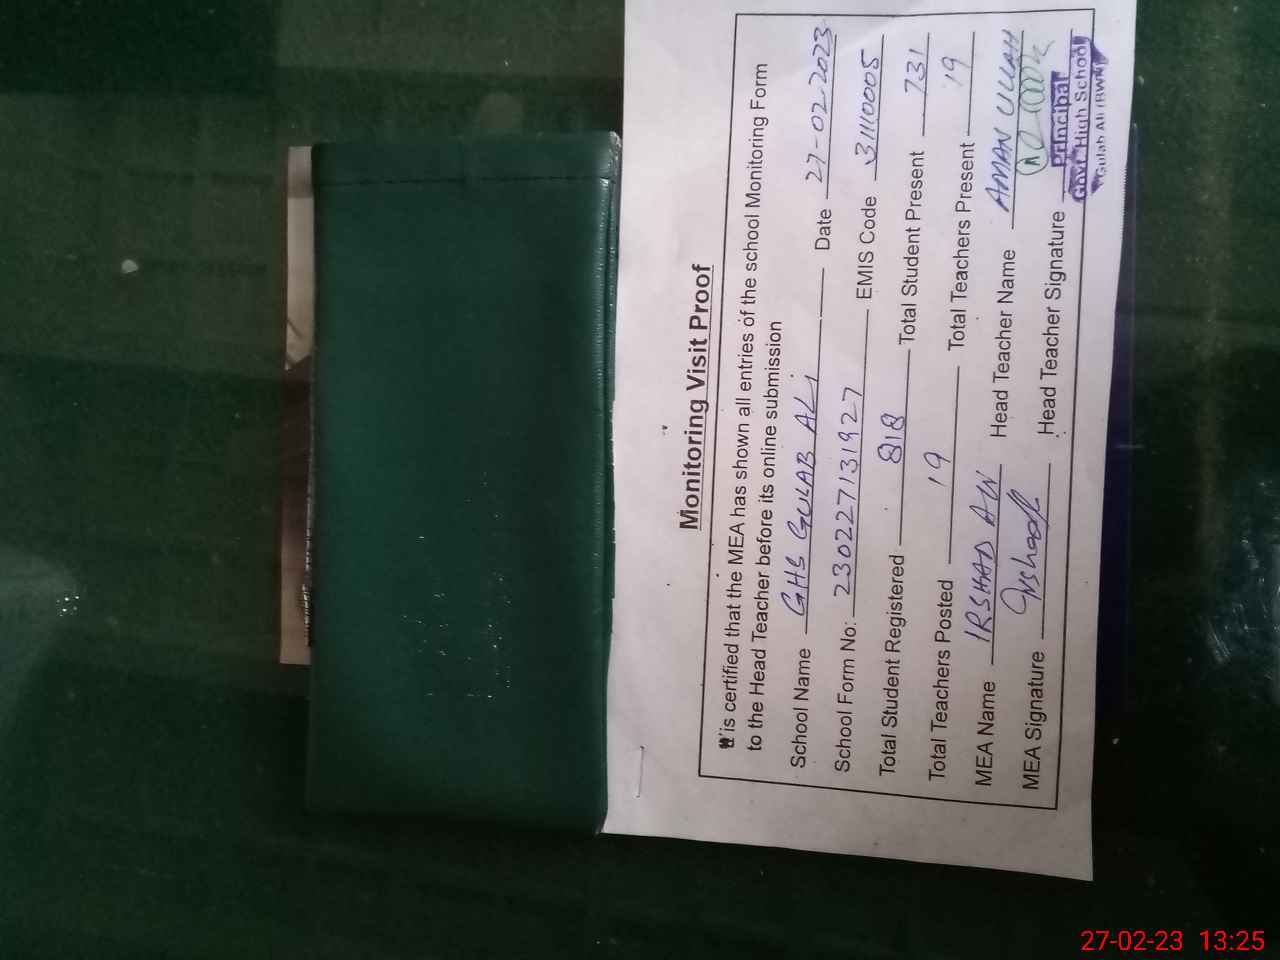 Monitoring Visit Proof
is certified that the MEA has shown all entries of the school Monitoring Form
to the Head Teacher before its online submission
School Name GHS GULAB ALI Date 27-02-2023
School Form No: 230227131927 EMIS Code 31110005
Total Student Registered 818 Total Student Present 731
Total Teachers Posted 19 Total Teachers Present 19
MEA Name IRSHAD ALI Head Teacher Name AMAN ULLAH
MEA Signature Irshad Head Teacher Signature
Principal
Govt. High School
Gulab Ali (BWN)
27-02-23 13:25